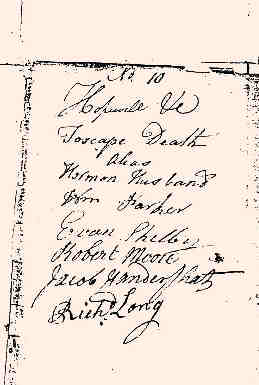 No. 10
Hopewell Ye
Toscape Death
alias
Hermon Husband
Wm Parker
Evan Shelby
Robert Moore
Jacob
Richd. Long